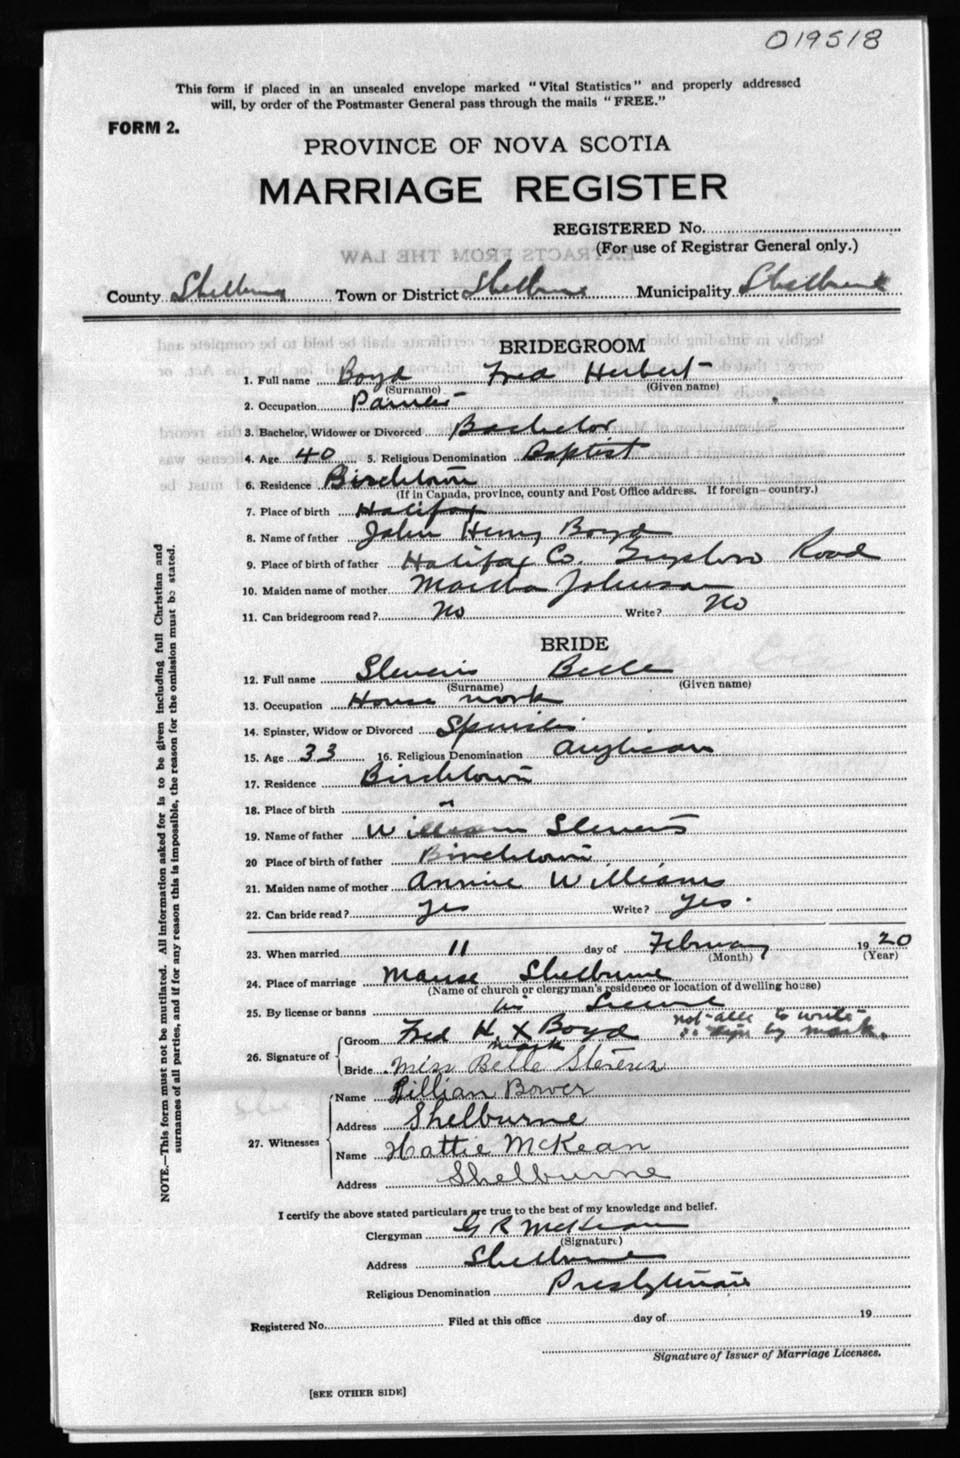 019518
This form if placed in an unsealed envelope marked "Vital Statistics" and properly addressed
will, by order of the Postmaster General pass through the mails "FREE."
FORM 2.
PROVINCE OF NOVA SCOTIA
MARRIAGE REGISTER
REGISTERED No.
(For use of Registrar General only.)
County Shelburne Town or District Shelburne Municipality Shelburne
BRIDEGROOM
1. Full name Boyd Fred Herbert
(Surname) (Given name)
2. Occupation
3. Bachelor, Widower or Divorced Bachelor
4. Age 40 5. Religious Denomination Baptist
6. Residence Birchtown
(If in Canada, province, county and Post Office address. If foreign—country.)
7. Place of birth Halifax
8. Name of father John Henry Boyd
9. Place of birth of father Halifax Co. Road
10. Maiden name of mother Martha Johnson
11. Can bridegroom read? No Write? No
BRIDE
12. Full name Stevens Belle
(Surname) (Given name)
13. Occupation House work
14. Spinster, Widow or Divorced Spinster
15. Age 33 16. Religious Denomination Anglican
17. Residence Birchtown
18. Place of birth "
19. Name of father William Stevens
20 Place of birth of father Birchtown
21. Maiden name of mother Annie Williams
22. Can bride read? Yes Write? Yes.
23. When married 11 day of February 1920
(Month) (Year)
24. Place of marriage Manse Shelburne
(Name of church or clergyman's residence or location of dwelling house)
25. By license or banns License
his
26. Signature of Groom Fred H. X Boyd not able to write
so sign by mark.
mark
Bride Miss Belle Stevens
27. Witnesses Name Lillian Bower
Address Shelburne
Name Hattie McKean
Address Shelburne
I certify the above stated particulars are true to the best of my knowledge and belief.
Clergyman G R McKean
(Signature)
Address Shelburne
Religious Denomination Presbyterian
Registered No. Filed at this office day of 19
Signature of Issuer of Marriage Licenses.
[SEE OTHER SIDE]
NOTE.—This form must not be mutilated. All information asked for is to be given including full Christian and
surnames of all parties, and if for any reason this is impossible, the reason for the omission must be stated.